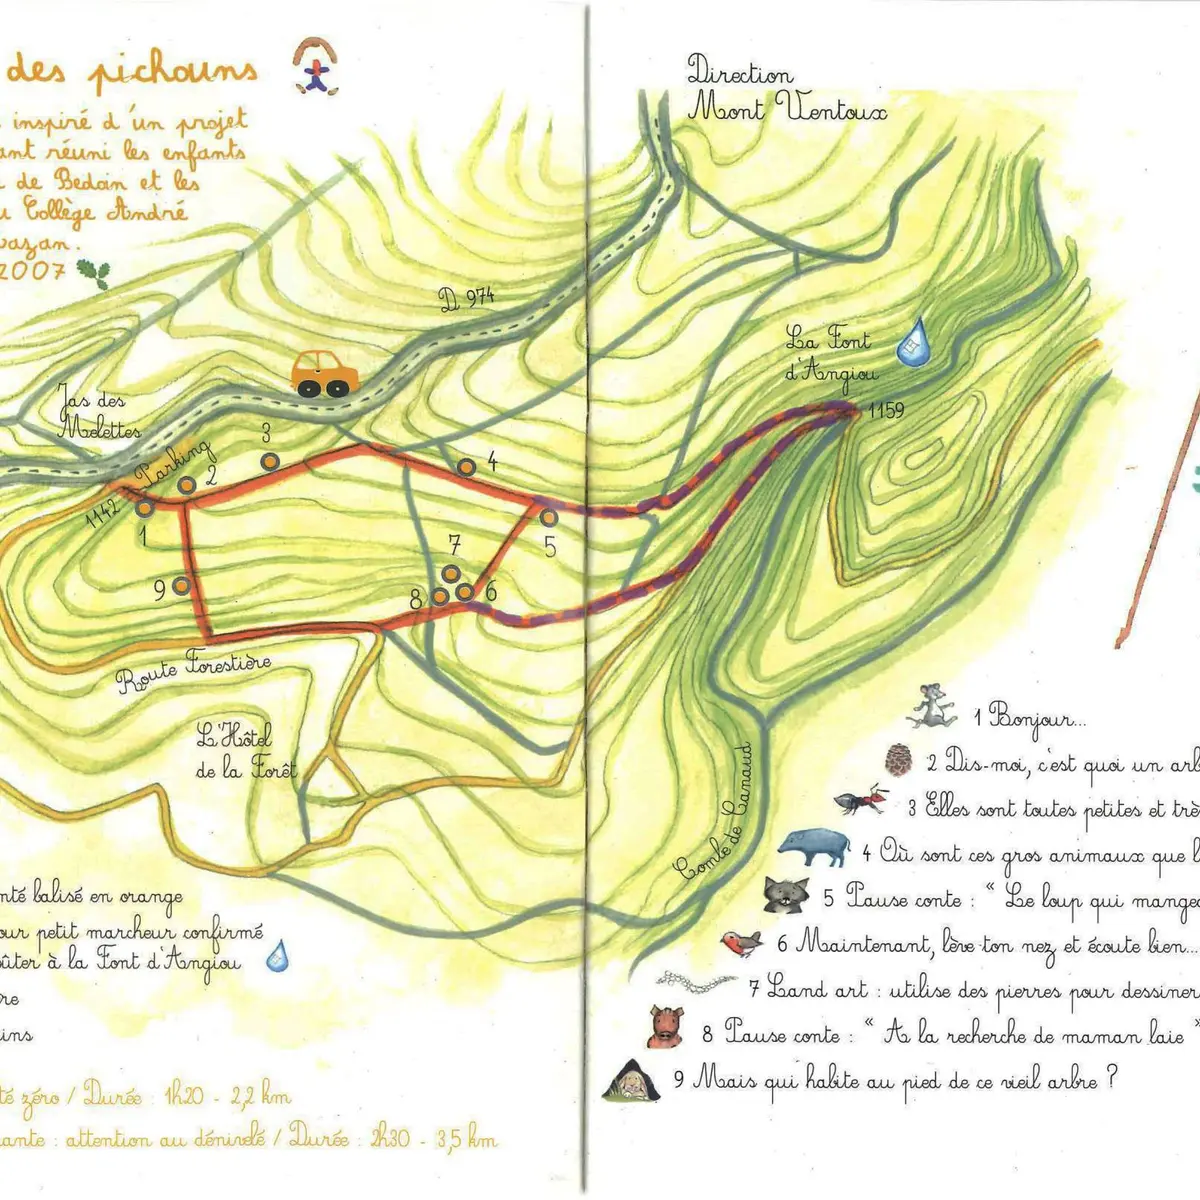 des pichouns
inspiré d'un projet
ant réuni les enfants
de Bedoin et les
u Collège André
vazan.
2007
Direction
Mont Ventoux
D 974
La Font
d'Angiou
1159
Jas des
Melettes
Parking
1142
1
2
3
4
5
6
7
8
9
Route Forestière
L'Hôtel
de la Forêt
Combe de Canaud
nté balisé en orange
our petit marcheur confirmé
oûter à la Font d'Angiou
re
ins
té zéro / Durée : 1h20 - 2,2 km
ante : attention au dénivelé / Durée : 2h30 - 3,5 km
1 Bonjour...
2 Dis-moi, c'est quoi un arb
3 Elles sont toutes petites et trè
4 Où sont ces gros animaux que l
5 Pause conte : " Le loup qui mangea
6 Maintenant, lève ton nez et écoute bien...
7 Land art : utilise des pierres pour dessiner
8 Pause conte : " A la recherche de maman laie "
9 Mais qui habite au pied de ce vieil arbre ?